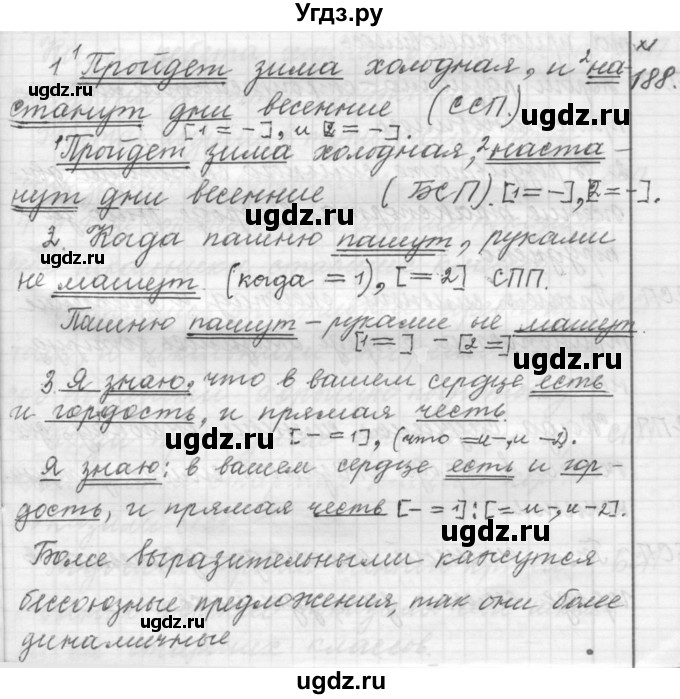 Угдз.ру
1 ¹Пройдет зима холодная, и ²на- 188.
станут дни весенние (ССП)
[1 = –], и [2 = –].
¹Пройдет зима холодная, ²наста-
нут дни весенние (БСП). [1 = –], [2 = –].
2. Когда пашню пашут, руками
не машут. (когда = 1), [= 2] СПП.
Пашню пашут – руками не машут.
[1 = ] – [2 = ]
3. Я знаю, что в вашем сердце есть
и гордость, и прямая честь.
[– = 1], (что = и –, и – 2).
Я знаю: в вашем сердце есть и гор-
дость, и прямая честь [– = 1] : [= и –, и – 2].
Более выразительными кажутся
бессоюзные предложения, так они более
динамичные
ugdz.ru
ugdz.ru
ugdz.ru
ugdz.ru
ugdz.ru
ugdz.ru
ugdz.ru
ugdz.ru
ugdz.ru
ugdz.ru
ugdz.ru
ugdz.ru
ugdz.ru